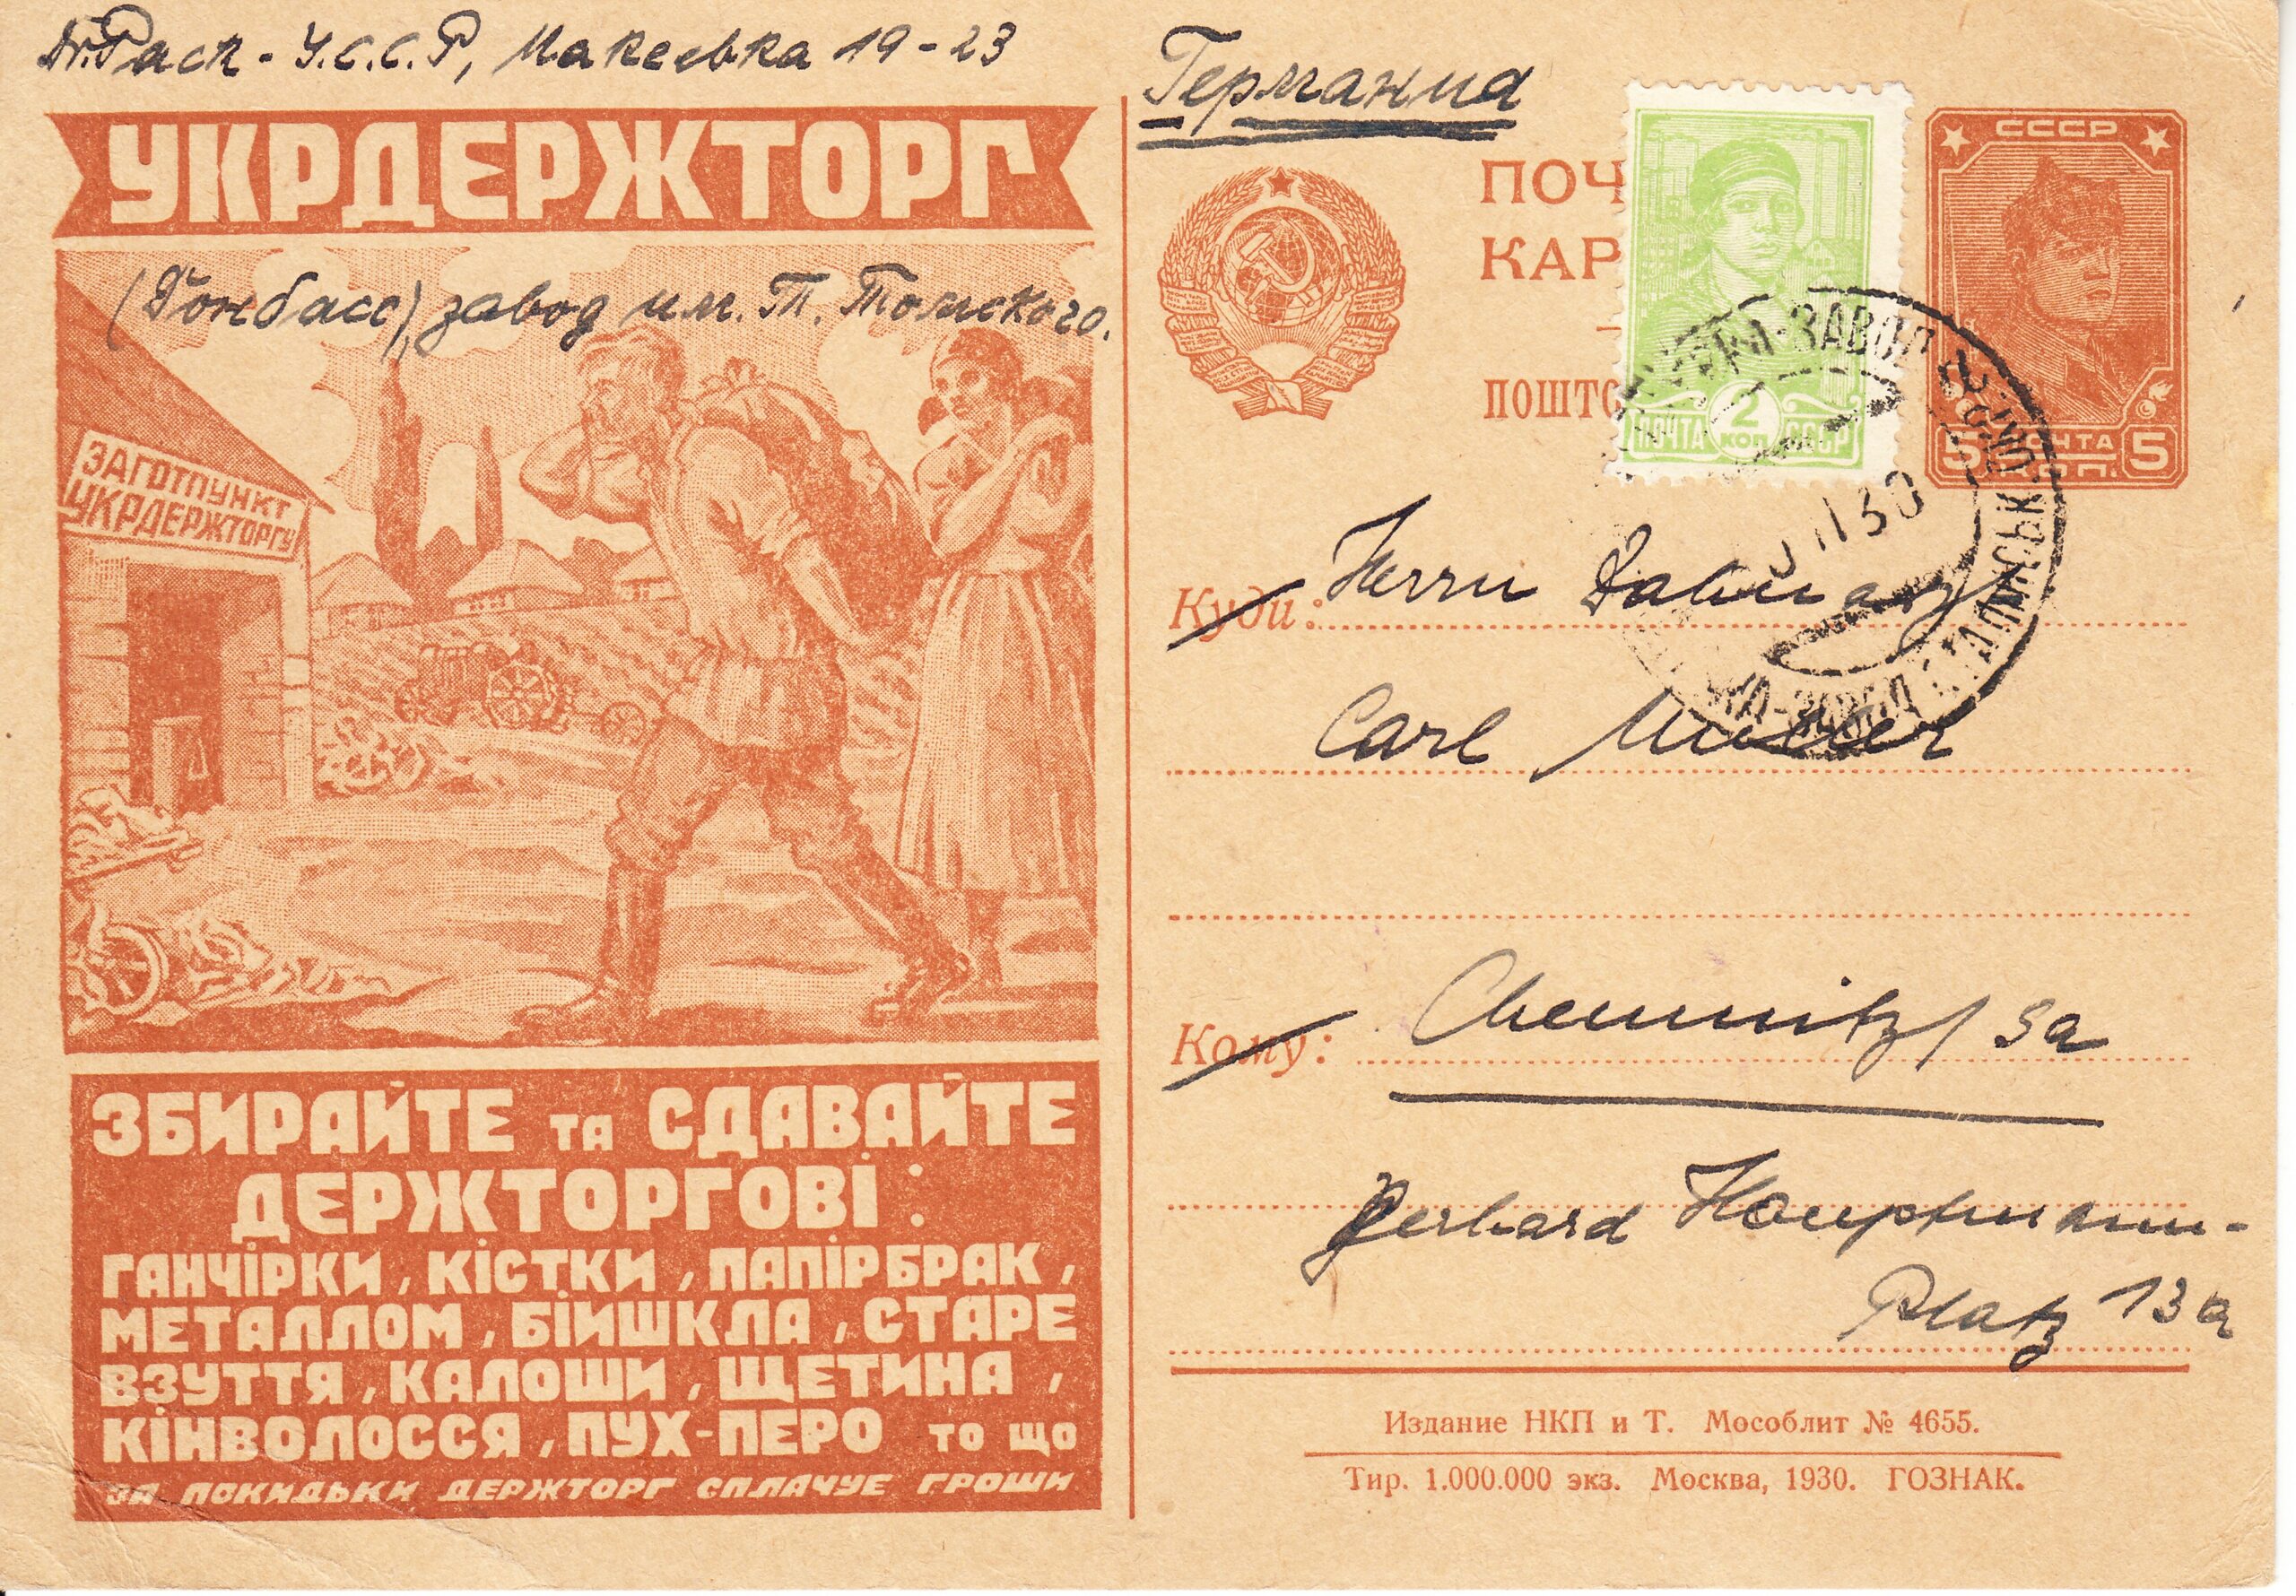 Dr. Раск - У.С.С.Р, Макеевка 19-23
УКРДЕРЖТОРГ
(Донбасс), завод им. Т. Томского.
ЗАГОТПУНКТ
УКРДЕРЖТОРГУ
ЗБИРАЙТЕ ТА СДАВАЙТЕ
ДЕРЖТОРГОВІ:
ГАНЧІРКИ, КІСТКИ, ПАПІРБРАК,
МЕТАЛЛОМ, БІЙШКЛА, СТАРЕ
ВЗУТТЯ, КАЛОШИ, ЩЕТИНА,
КІНВОЛОССЯ, ПУХ-ПЕРО ТО ЩО
ЗА ПОКИДЬКИ ДЕРЖТОРГ СПЛАЧУЕ ГРОШИ
Германия
ПОЧ
КАР
ПОШТО
ПОЧТА 2 КОП СССР
СССР
5 ПОЧТА 5
КОП.
Куди: Herrn
Carl Müller
Кому: Chemnitz / Sa
Gerhard Hauptmann-
Platz 13a
Издание НКП и Т. Мособлит № 4655.
Тир. 1.000.000 экз. Москва, 1930. ГОЗНАК.